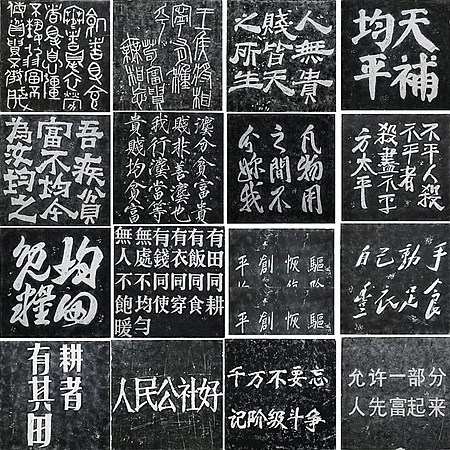 王侯將相
寧有種
苟富貴
無相忘
人無貴
賤皆天
之所生
天補
均平
吾疾貧
富不均今
為汝均之
法分貧富貴
賤非善法也
我行法當等
貴賤均貧富
凡物用
之間不
分妳我
不平人殺
不平者
殺盡不平
方太平
均田
免糧
有田同耕
有飯同食
有衣同穿
有錢同使
無處不均勻
無人不飽暖
驅
恢
創
平
自己動手
豐衣足食
耕者
有其田
人民公社好
千万不要忘
记阶级斗争
允许一部分
人先富起来